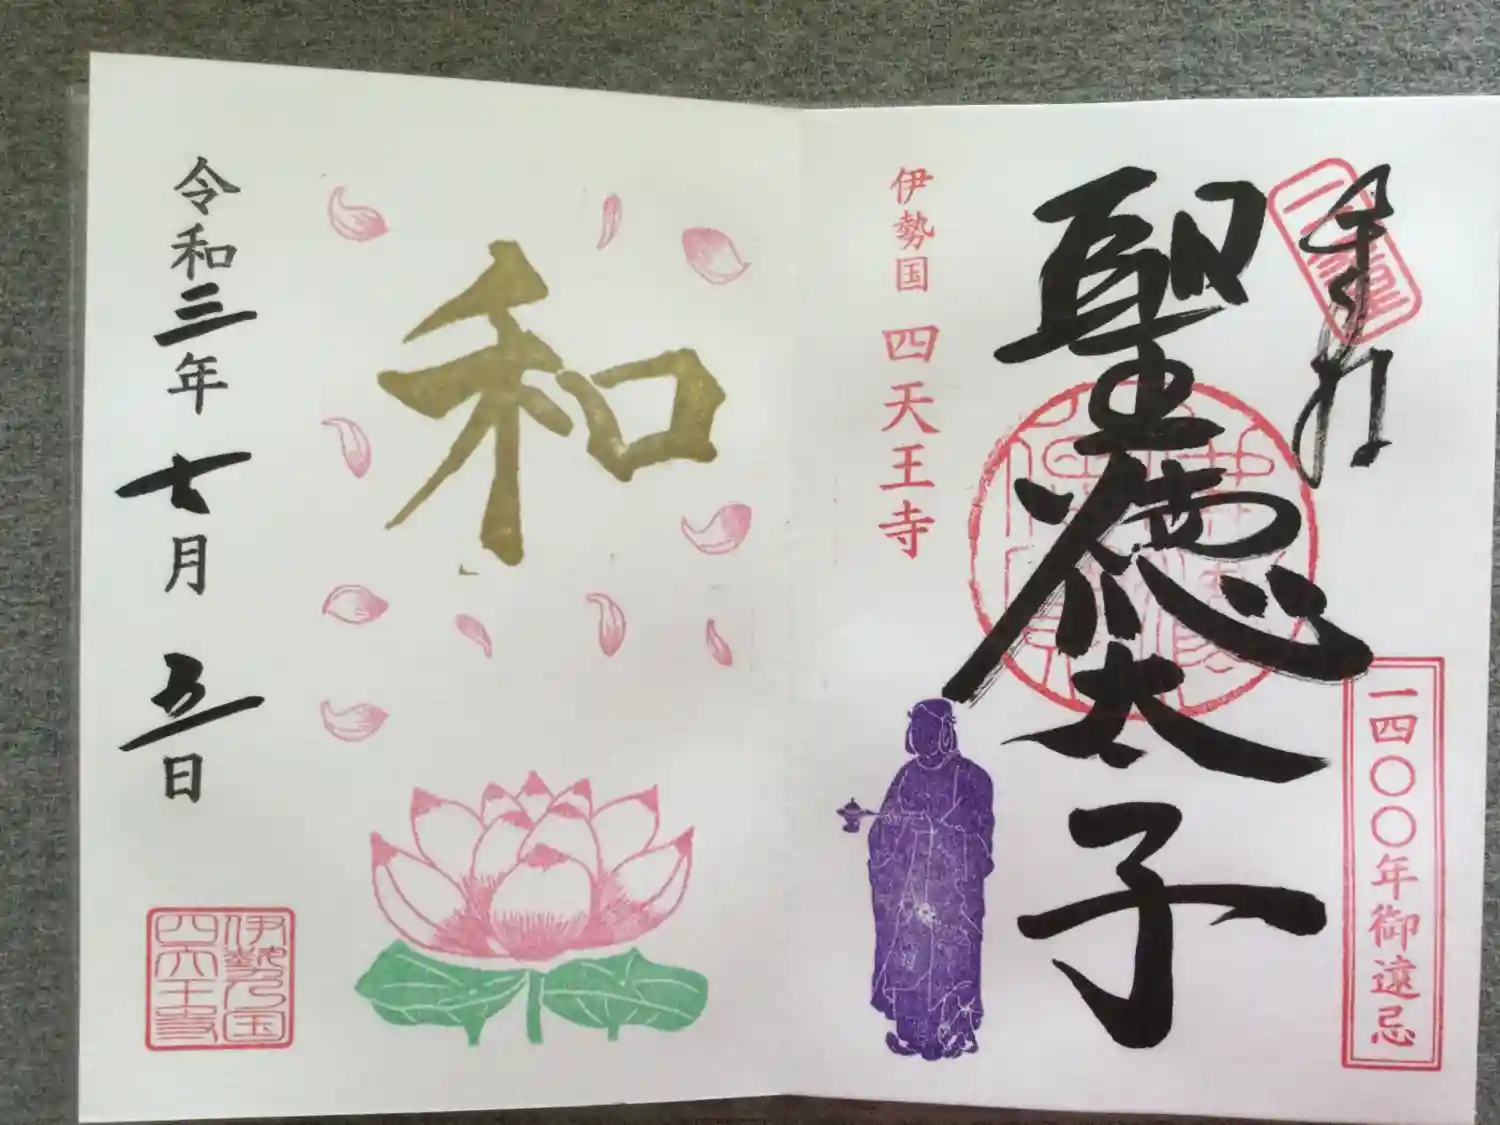 奉拝
聖徳太子
一四〇〇年御遠忌
伊勢国 四天王寺
和
令和三年七月五日
伊勢乃国
四天王寺